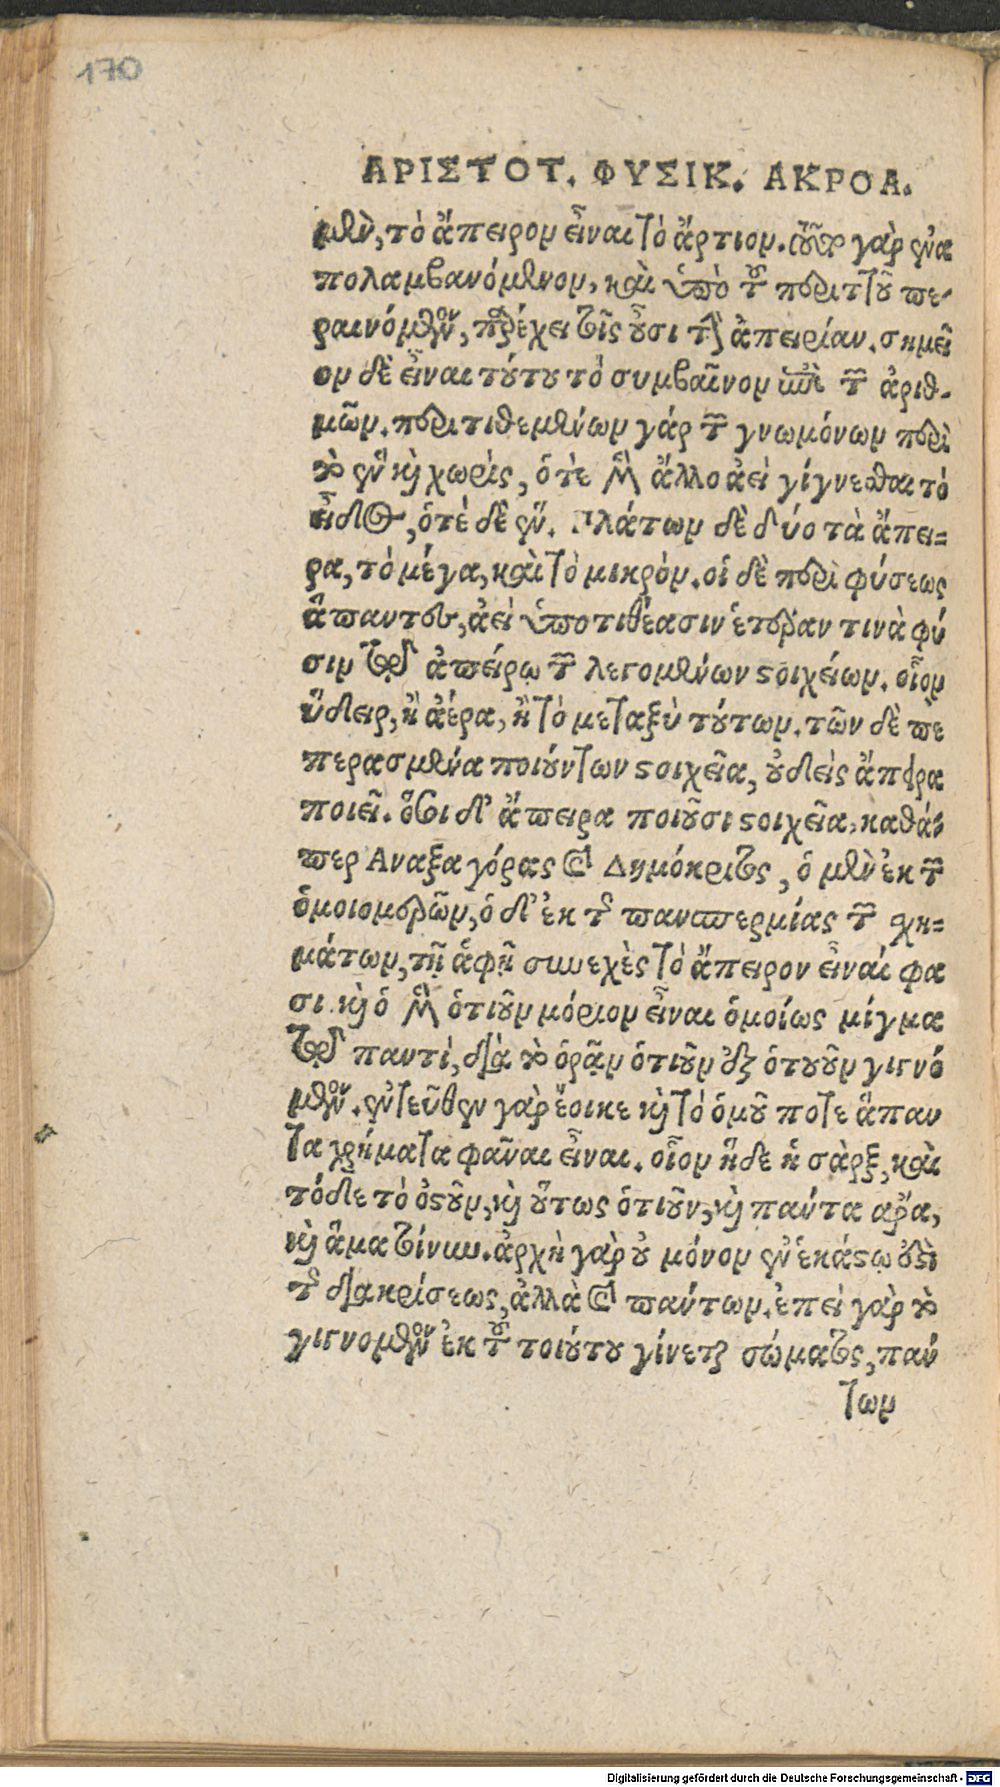 170
ΑΡΙΣΤΟΤ. ΦΥΣΙΚ. ΑΚΡΟΑ.
μὲν, τὸ ἄπειρον εἶναι τὸ ἄρτιον. τοῦτο γὰρ ἐνα
πολαμβανόμενον, καὶ ὑπὸ τοῦ περιττοῦ πε-
ραινόμενον, παρέχει τοῖς οὖσι τὴν ἀπειρίαν. σημεῖ
ον δὲ εἶναι τούτου τὸ συμβαῖνον ἐπὶ τῶν ἀριθ-
μῶν. περιτιθεμένων γάρ τῶν γνωμόνων περὶ
τὸ ἓν καὶ χωρὶς, ὁτὲ μὲν ἄλλο ἀεὶ γίγνεσθαι τὸ
εἶδος, ὁτέ δὲ ἕν. Πλάτων δὲ δύο τὰ ἄπει=
ρα, τὸ μέγα, καὶ τὸ μικρόν. οἱ δὲ περὶ φύσεως
ἅπαντες, ἀεὶ ὑποτιθέασιν ἑτέραν τινὰ φύ
σιν τῷ ἀπείρῳ τῶν λεγομένων στοιχείων. οἷον
ὕδωρ, ἢ ἀέρα, ἢ τὸ μεταξὺ τούτων. τῶν δὲ πε
περασμένα ποιούντων στοιχεῖα, οὐδεὶς ἄπειρα
ποιεῖ. ὅσοι δ' ἄπειρα ποιοῦσι στοιχεῖα, καθά
περ Αναξαγόρας καὶ Δημόκριτος, ὁ μὲν ἐκ τῶν
ὁμοιομερῶν, ὁ δ' ἐκ τῆς πανσπερμίας τῶν σχη=
μάτων, τῇ ἁφῇ συνεχὲς τὸ ἄπειρον εἶναί φα
σι. καὶ ὁ μὲν ὁτιοῦν μόριον εἶναι ὁμοίως μίγμα
τῷ παντὶ, διὰ τὸ ὁρᾷν ὁτιοῦν ἐξ ὁτουοῦν γιγνό
μενον. ἐντεῦθεν γὰρ ἔοικε καὶ τὸ ὁμοῦ ποτε ἅπαν
τα χρήματα φᾶναι εἶναι. οἷον ἥδε ἡ σὰρξ, καὶ
τόδε τὸ ὀστοῦν, καὶ οὕτως ὁτιοῦν, καὶ πάντα ἄρα,
καὶ ἅμα τοίνυν. ἀρχὴ γὰρ οὐ μόνον ἐν ἑκάστῳ ἐστὶ
τῆς διακρίσεως, ἀλλὰ καὶ πάντων. ἐπεὶ γὰρ τὸ
γιγνόμενον ἐκ τοῦ τοιούτου γίνεται σώματος, πάν
των
Digitalisierung gefördert durch die Deutsche Forschungsgemeinschaft - DFG